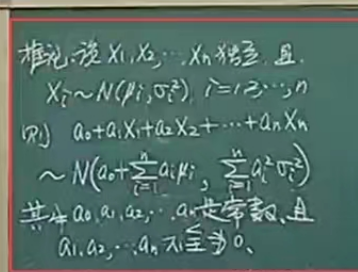 推论：设 X₁, X₂, ⋯, Xₙ 独立，且
Xᵢ ~ N(μᵢ, σᵢ²), i=1, 2, ⋯, n
则 a₀+a₁X₁+a₂X₂+⋯+aₙXₙ
~ N(a₀+∑ᵢ₌₁ⁿaᵢμᵢ, ∑ᵢ₌₁ⁿaᵢ²σᵢ²)
其中 a₀, a₁, a₂, ⋯, aₙ 是常数、且
a₁, a₂, ⋯, aₙ 不全为0、